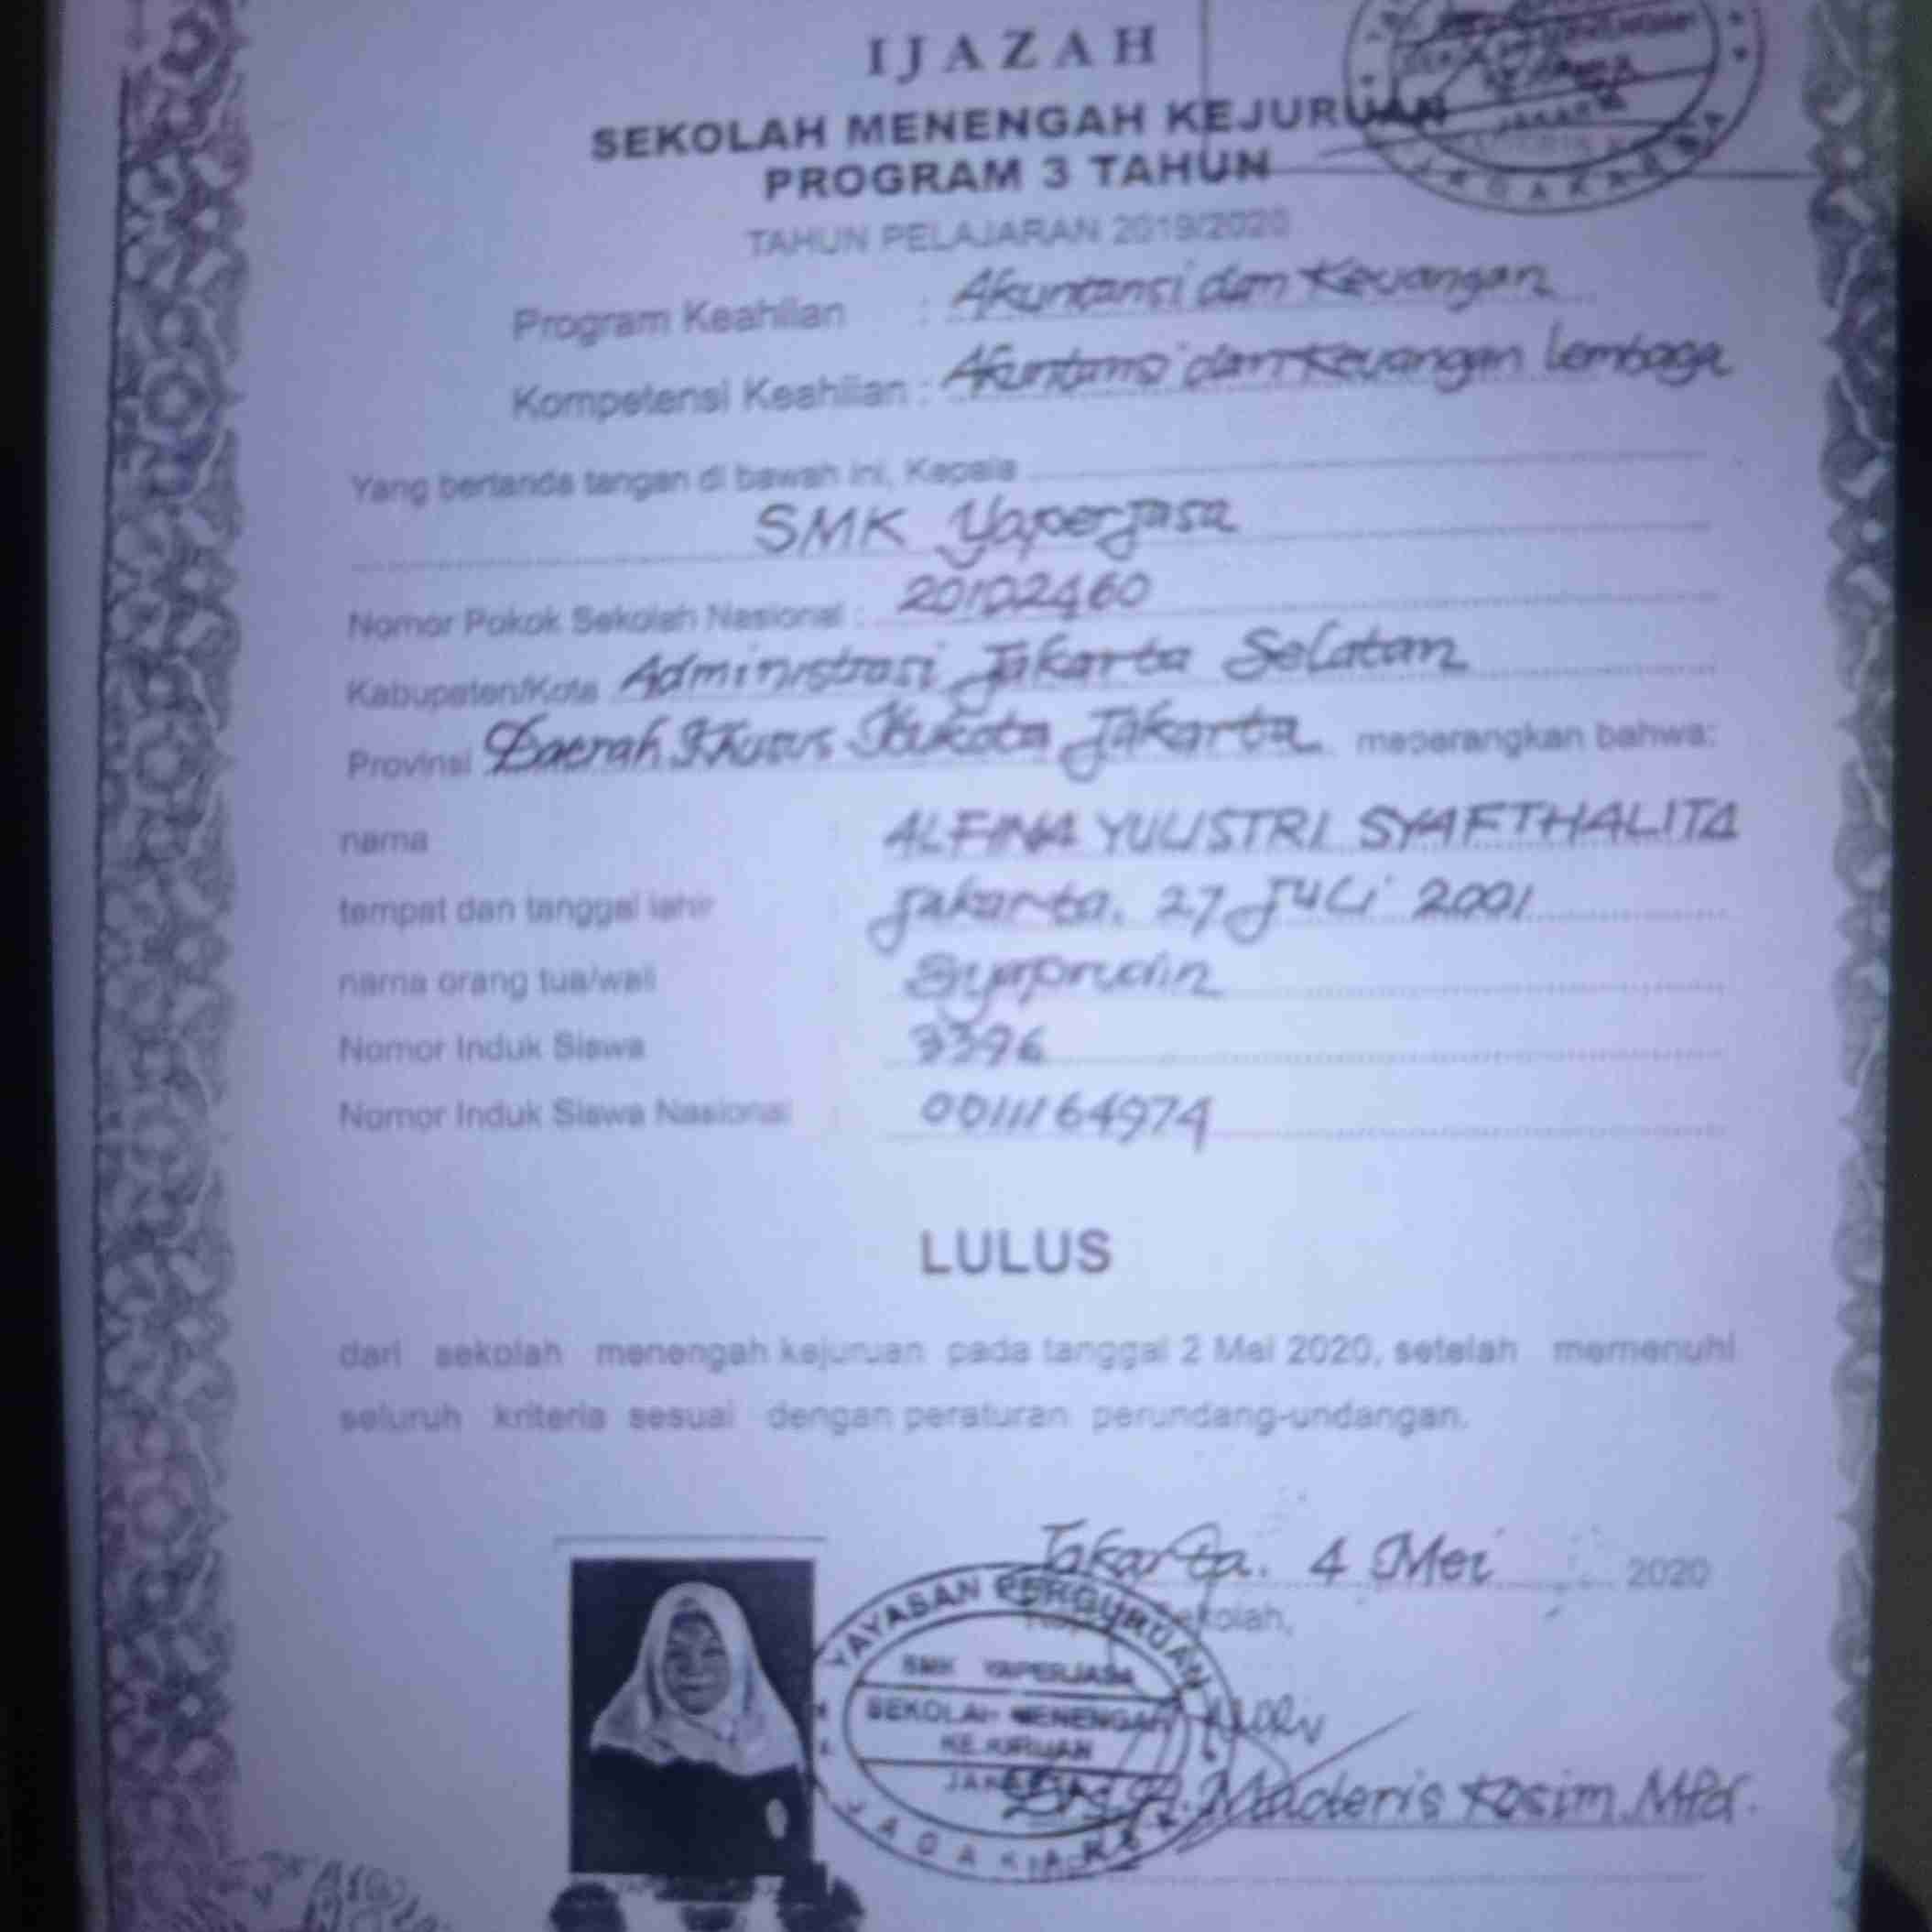 IJAZAH
SEKOLAH MENENGAH KEJURUAN
PROGRAM 3 TAHUN
TAHUN PELAJARAN 2019/2020
Program Keahlian : Akuntansi dan Keuangan
Kompetensi Keahlian : Akuntansi dan Keuangan Lembaga
Yang bertanda tangan di bawah ini, Kepala
SMK Yaperjasa
Nomor Pokok Sekolah Nasional : 20102460
Kabupaten/Kota Administrasi Jakarta Selatan
Provinsi Daerah Khusus Ibukota Jakarta menerangkan bahwa:
nama ALFINA YULISTRI SYAFTHALITA
tempat dan tanggal lahir Jakarta, 27 Juli 2001
nama orang tua/wali Syaprudin
Nomor Induk Siswa 3396
Nomor Induk Siswa Nasional 0011164974
LULUS
dari sekolah menengah kejuruan pada tanggal 2 Mei 2020, setelah memenuhi
seluruh kriteria sesuai dengan peraturan perundang-undangan.
Jakarta, 4 Mei 2020
Kepala Sekolah,
YAYASAN PERGURUAN
SMK YAPERJASA
SEKOLAH MENENGAH
KEJURUAN
JAKARTA
JAGAKARSA
Maderis Kosim, MPd.